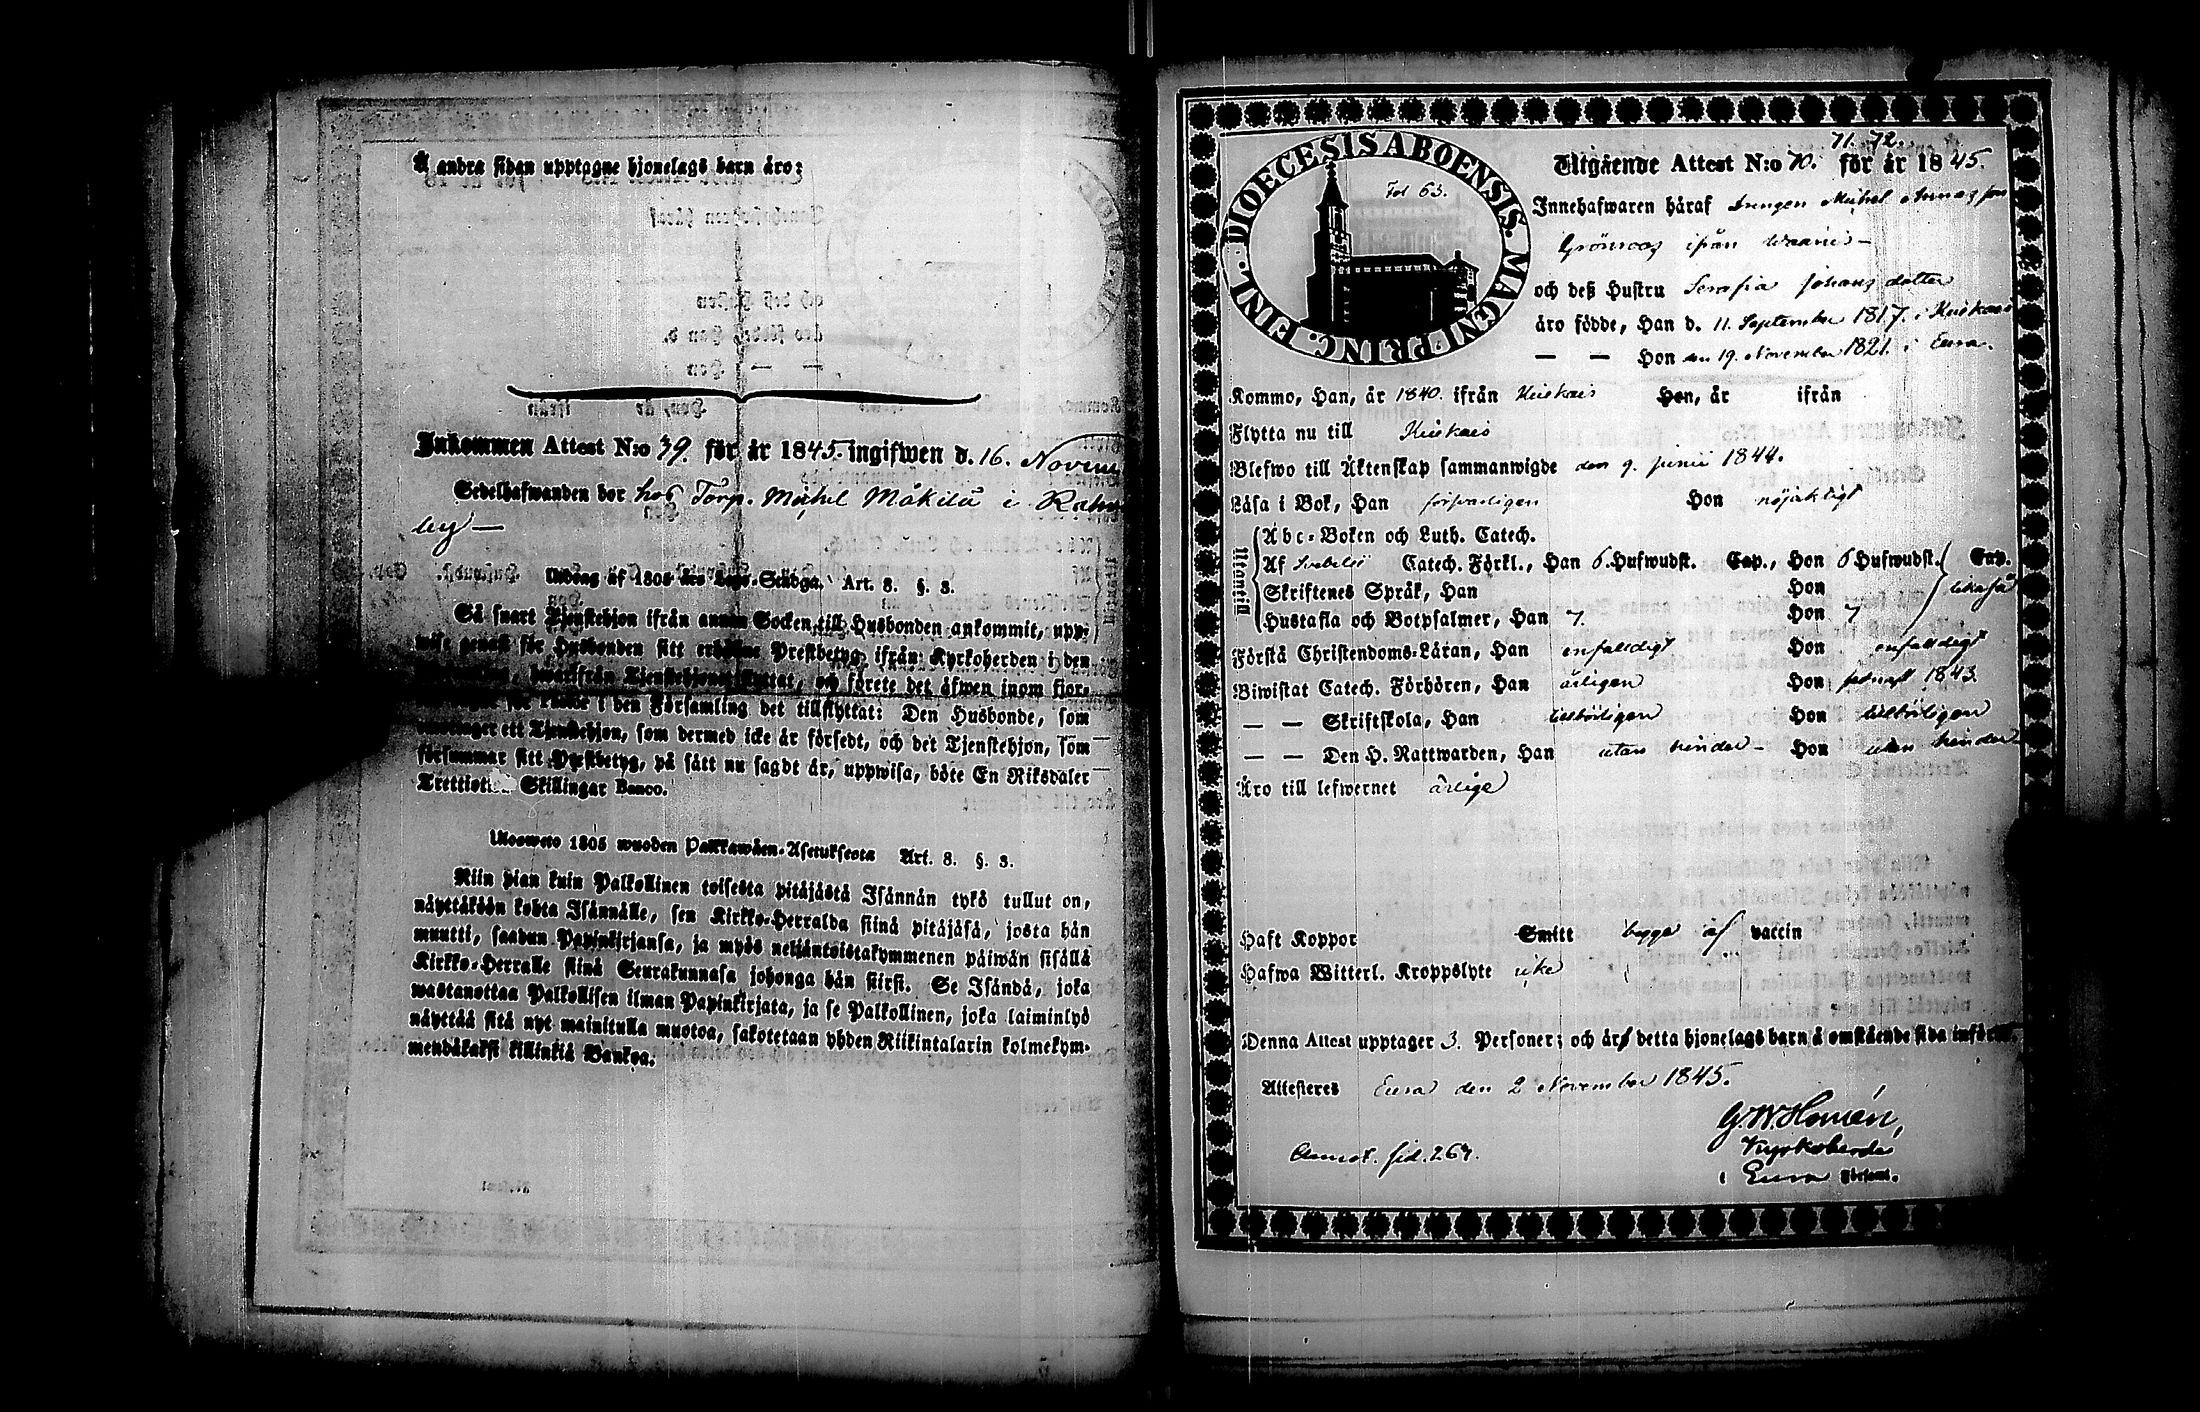 Å andra sidan upptagne hjonelags barn äro:
Inkommen Attest N:o 39. för år 1845. ingifwen d. 16. Novem
Sedelhafwanden bor hos Torp. Michel Mäkilä i
by —
Utdrag af 1805 års Lego-Stadga. Art. 8. §. 3.
Så snart Tjenstehjon ifrån annan Socken till Husbonden ankommit, upp-
wise genast för Husbonden sitt erhållne Prestbetyg ifrån Kyrkoherden i den
hwarifrån Tjenstehjonet flyttat, och förete det äfwen inom fjor-
i den Församling det tillflyttat: Den Husbonde, som
emottager ett Tjenstehjon, som dermed icke är försedt, och det Tjenstehjon, som
försummar sitt Prestbetyg, på sätt nu sagdt är, uppwisa, böte En Riksdaler
Trettiotwå Skillingar Banco.
Ulosweto 1805 wuoden Palkkawäen-Asetuksesta Art. 8. §. 3.
Niin pian kuin Palkollinen toisesta pitäjästä Isännän tykö tullut on,
näyttäköön kohta Isännälle, sen Kirkko-Herralda siinä pitäjäsä, josta hän
muutti, saadun Papinkirjansa, ja myös neljäntoistakymmenen päiwän sisällä
Kirkko-Herralle siinä Seurakunnasa johonga hän siirsi. Se Isändä, joka
wastanottaa Palkollisen ilman Papinkirjata, ja se Palkollinen, joka laiminlyö
näyttää sitä nyt mainitulla muotoa, sakotetaan yhden Riikintalarin kolmekym-
mendäkaksi killinkiä Bankoa.
DIOECESIS ABOENSIS. MAGNI PRINC. FINL.
Fol 63.
71. 72.
Utgående Attest N:o 70. för år 1845.
Innehafwaren häraf Drengen Michel
Grönroos ifrån
och deß Hustru Serafia Johans dotter
äro födde, Han d. 11. September 1817. i Kiukais
— — Hon den 19. November 1821. i Eura.
Komne, Han, år 1840. ifrån Kiukais Hon, år ifrån
Flytta nu till Kiukais
Blefwo till Äktenskap sammanwigde den 9. Junii 1844.
Läsa i Bok, Han försvarligen Hon nöjaktigt
Utantill
Abc-Boken och Luth. Catech.
Af Svebelii Catech. Förkl., Han 6 Hufwudst. Cap., Hon 6 Hufwudst. Cap.
Skriftenes Språk, Han Hon likaså
Hustafla och Botpsalmer, Han 7. Hon 7
Förstå Christendoms-Läran, Han enfalldigt Hon enfalldigt
Biwistat Catech. Förhören, Han årligen Hon senast 1843.
— — Skriftskola, Han tillbörligen Hon tillbörligen
— — Den H. Nattwarden, Han utan hinder — Hon utan hinder
Äro till lefwernet ärlige
Haft Koppor Smitt begge af vaccin
Hafwa Witterl. Kroppslyte icke
Denna Attest upptager 3. Personer; och äro detta hjonelags barn å omstående sida införde.
Attesteres Eura den 2 November 1845.
G. W. Homén,
Kyrkoherde
i Eura Församl.
Annot. sid. 267.